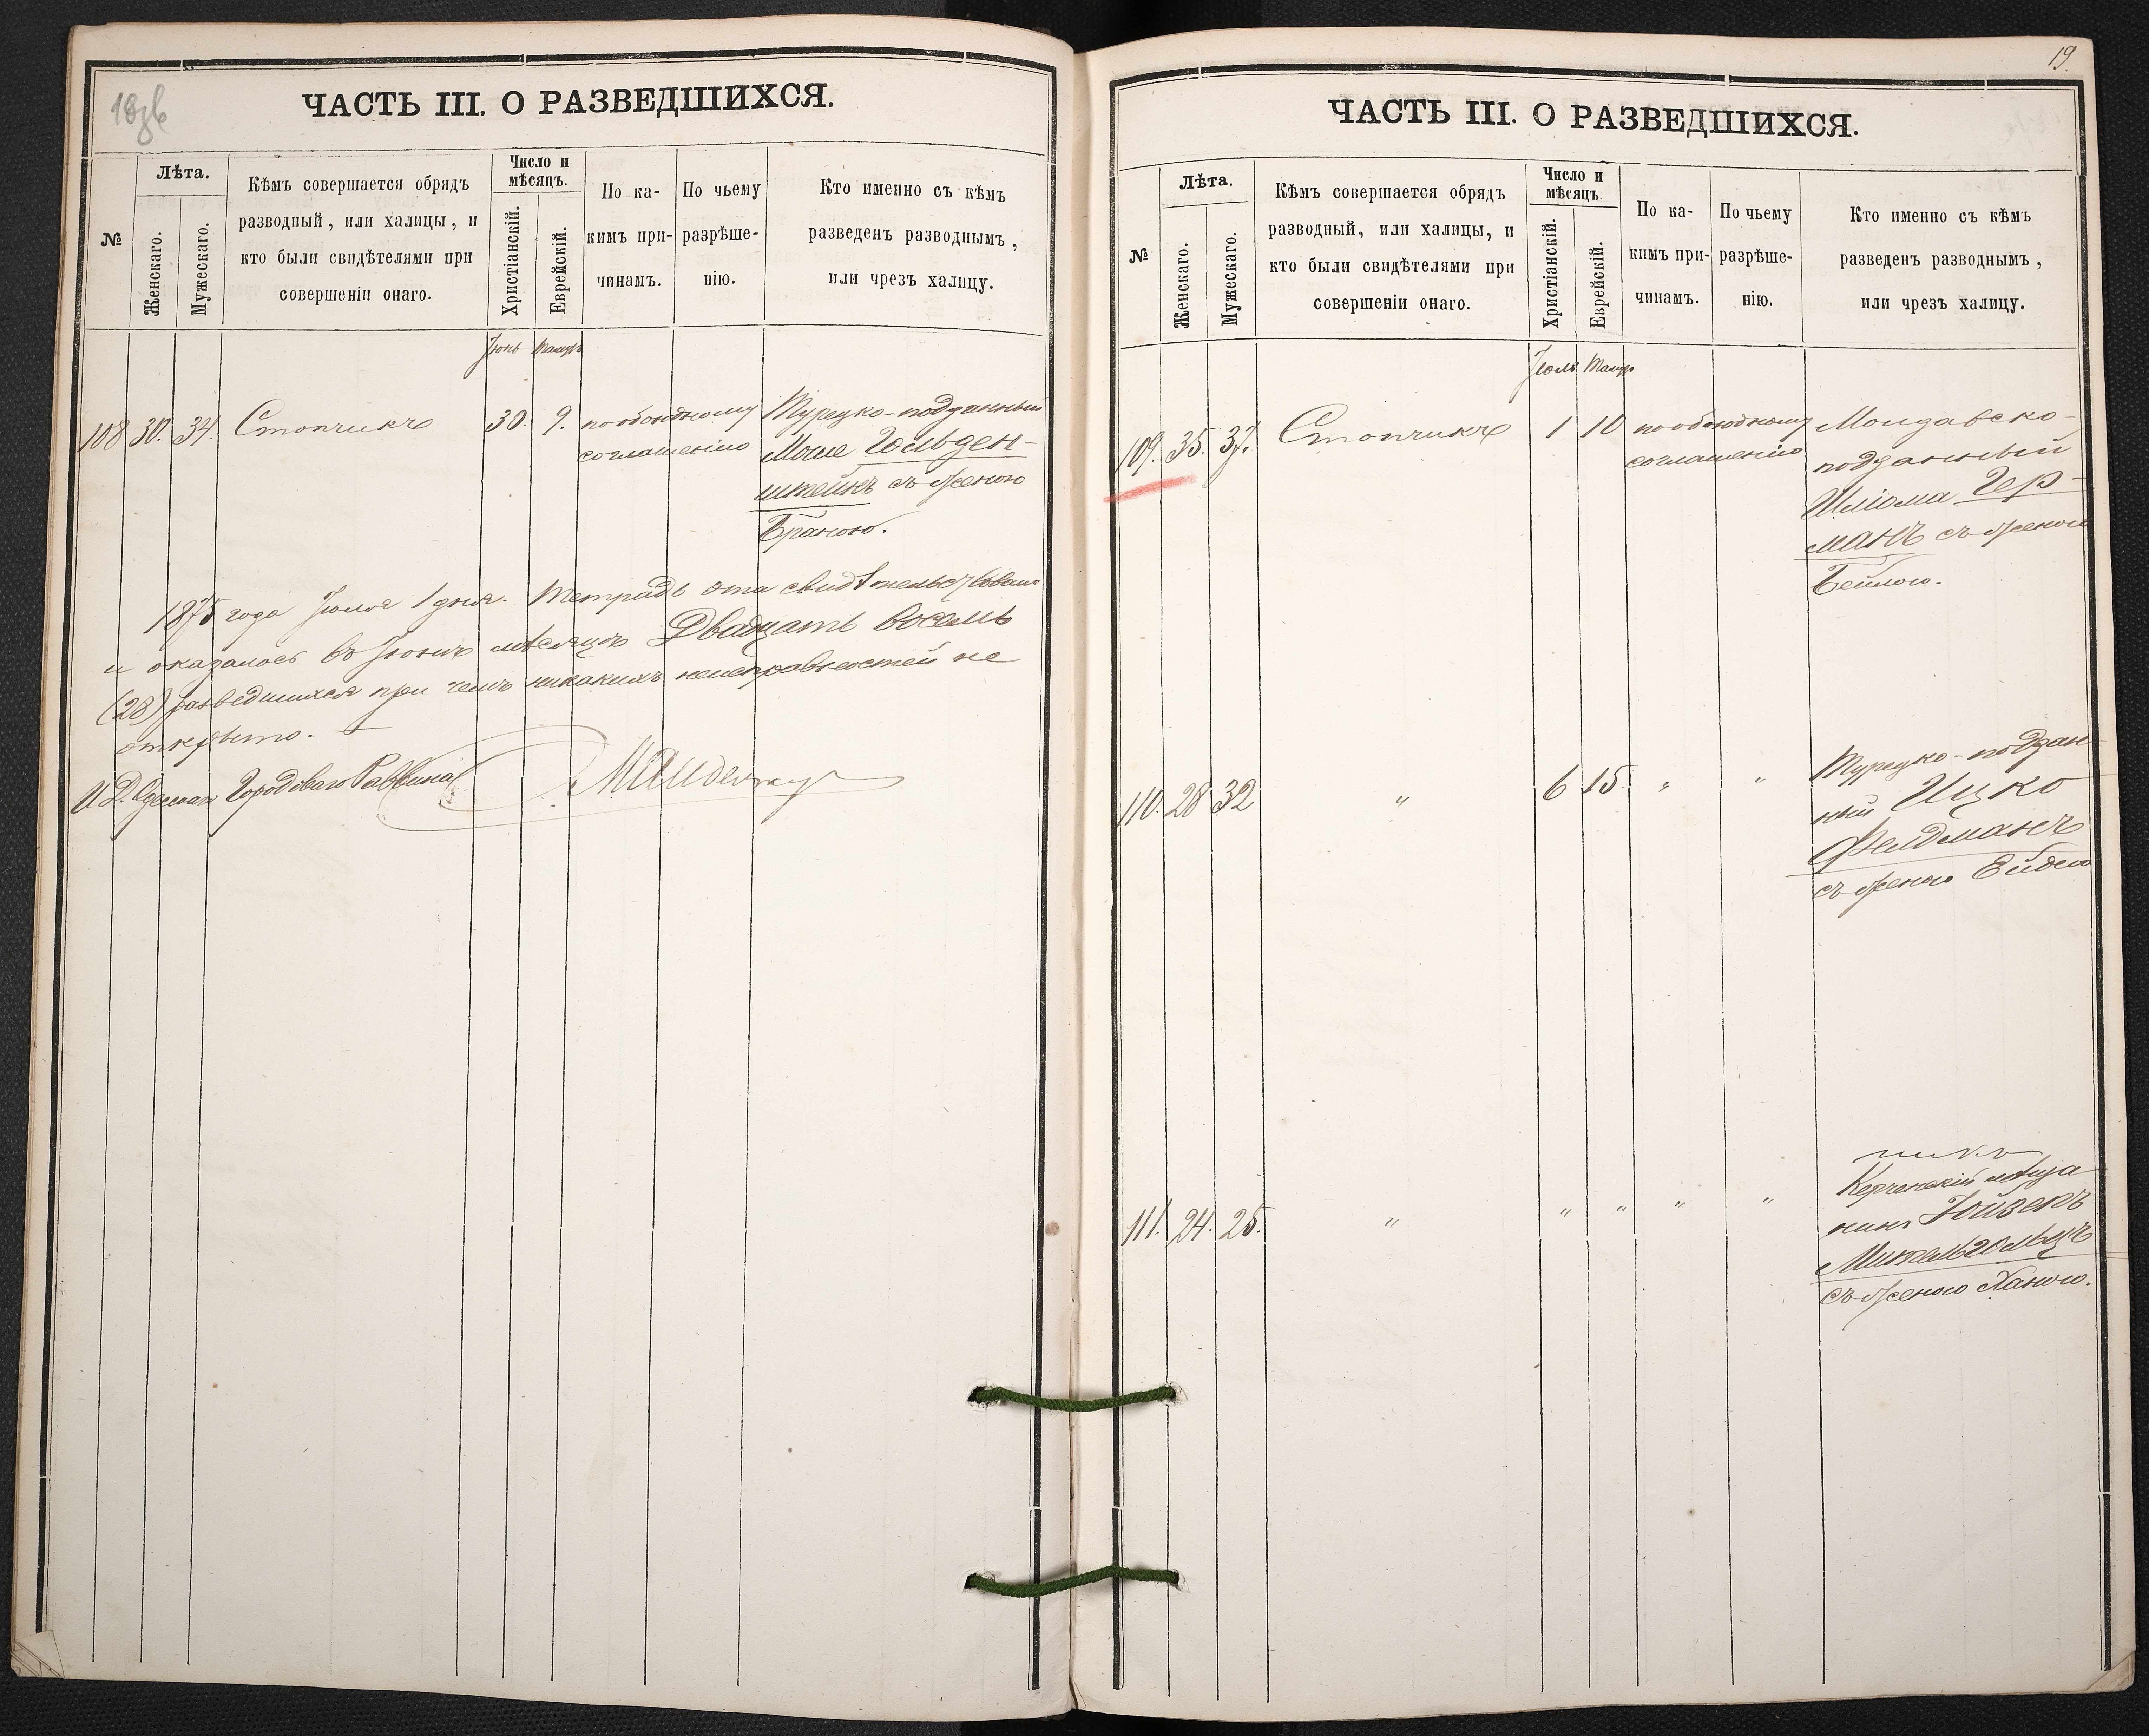 18об
ЧАСТЬ III. О РАЗВЕДШИХСЯ.
№
Лѣта.
Женскаго.
Мужескаго.
Кѣмъ совершается обрядъ
разводный, или халицы, и
кто были свидѣтелями при
совершеніи онаго.
Число и
мѣсяцъ.
Христіанскій.
Еврейскій.
По ка-
кимъ при-
чинамъ.
По чьему
разрѣше-
нію.
Кто именно съ кѣмъ
разведенъ разводнымъ,
или чрезъ халицу.
Іюнь Тамузъ
108 30. 34. Стопчикъ 30. 9. по обоюдному
соглашенію
Турецко-подданный
Моше Гольден-
штейнъ съ женою
Браною.
1875 года Іюля 1 дня. Тетрадь эта свидѣтельствована
и оказалось въ Іюнѣ мѣсяцѣ Двадцать восемь
(28) разведшихся при чемъ никакихъ неисправностей не
открыто.
И. Д. Одесскаго Городоваго Раввина
19.
ЧАСТЬ III. О РАЗВЕДШИХСЯ.
№
Лѣта.
Женскаго.
Мужескаго.
Кѣмъ совершается обрядъ
разводный, или халицы, и
кто были свидѣтелями при
совершеніи онаго.
Число и
мѣсяцъ.
Христіанскій.
Еврейскій.
По ка-
кимъ при-
чинамъ.
По чьему
разрѣше-
нію.
Кто именно съ кѣмъ
разведенъ разводнымъ,
или чрезъ халицу.
Іюль Тамузъ
109. 35. 37. Стопчикъ 1 10 по обоюдному
соглашенію
Молдавско-
подданный
Шлiома Гер-
манъ съ женою
Бейлою.
110. 28 32 " 6 15. " "
Турецко-поддан-
ный Ицко
Фелдманъ
съ женою Ейдею
111. 24. 25. " " " " "
Керченскій мѣща
нинъ Іойзепъ
Мительгольцъ
съ женою Ханою.